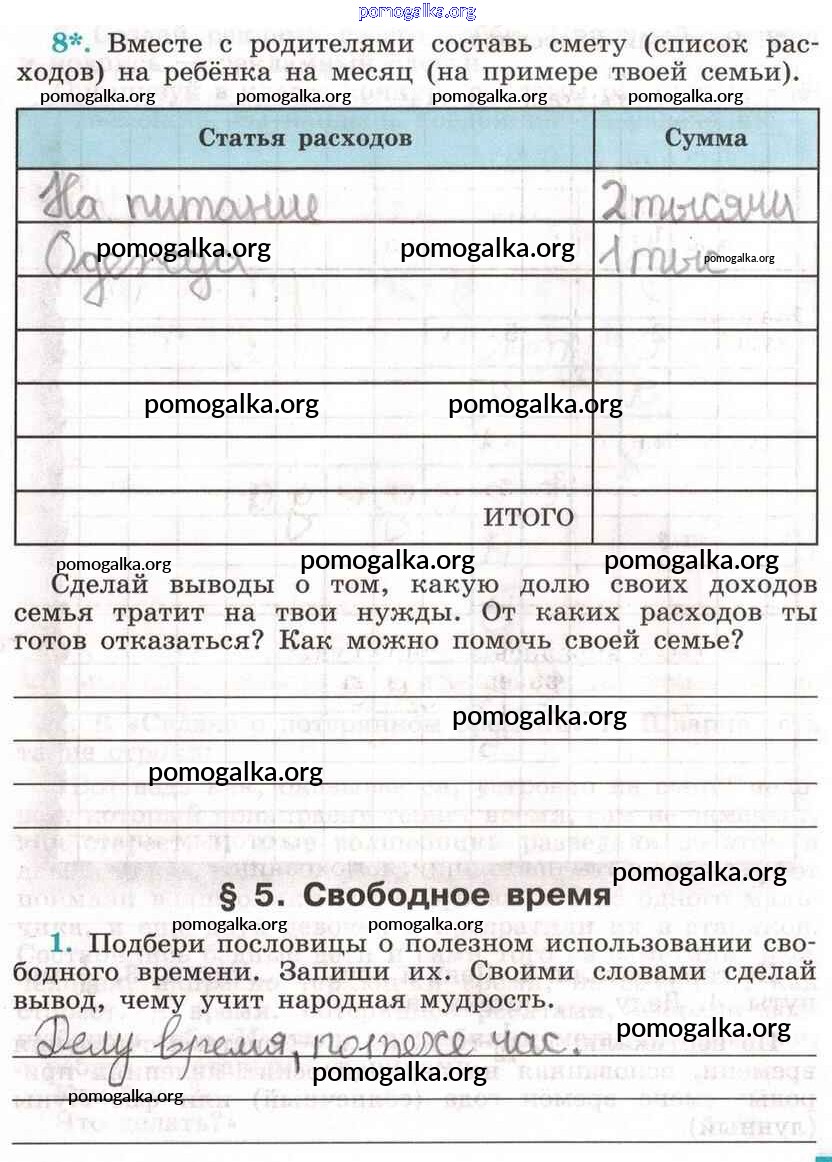 pomogalka.org
8*. Вместе с родителями составь смету (список рас-
ходов) на ребёнка на месяц (на примере твоей семьи).
pomogalka.org pomogalka.org pomogalka.org pomogalka.org
Статья расходов Сумма
На питание 2 тысячи
Одежда 1 тыс
pomogalka.org pomogalka.org pomogalka.org
pomogalka.org pomogalka.org
ИТОГО
pomogalka.org pomogalka.org pomogalka.org
Сделай выводы о том, какую долю своих доходов
семья тратит на твои нужды. От каких расходов ты
готов отказаться? Как можно помочь своей семье?
pomogalka.org
pomogalka.org
pomogalka.org
§ 5. Свободное время
pomogalka.org pomogalka.org
1. Подбери пословицы о полезном использовании сво-
бодного времени. Запиши их. Своими словами сделай
вывод, чему учит народная мудрость.
Делу время, потехе час. pomogalka.org
pomogalka.org
pomogalka.org